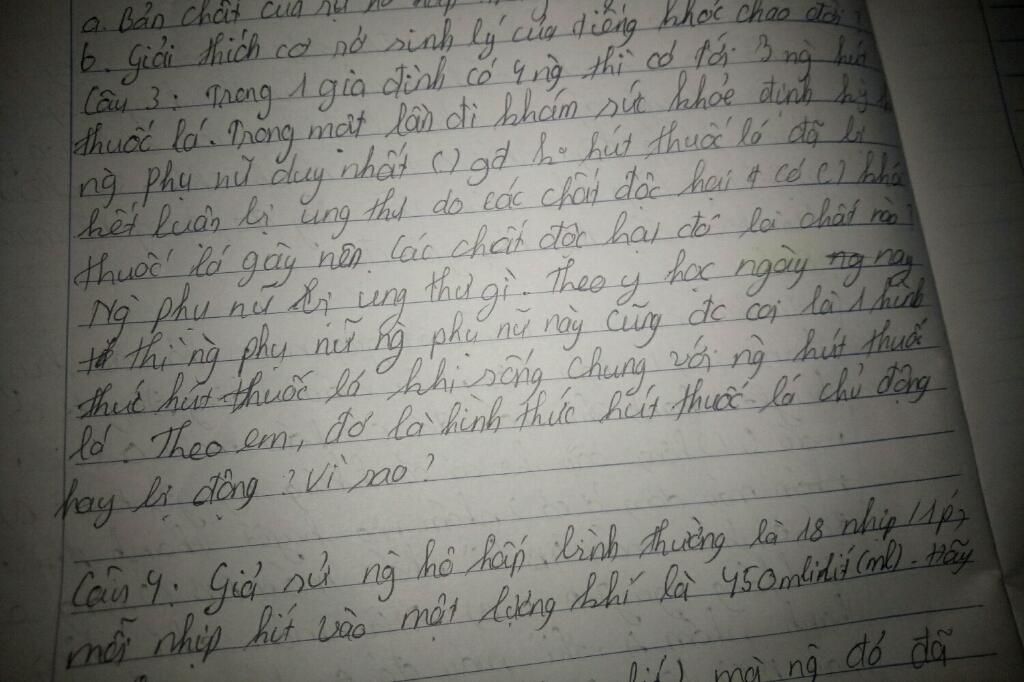 a. Bản chất của sự hô hấp
b. Giải thích cơ sở sinh lý của tiếng khóc chào đời?
Câu 3: Trong 1 gia đình có 4 ng thì có tới 3 ng hút
thuốc lá. Trong một lần đi khám sức khỏe định kỳ
ng phụ nữ duy nhất (.) gđ ko hút thuốc lá đã bị
kết luận bị ung thư do các chất độc hại có (.) khói
thuốc lá gây nên. Các chất độc hại đó là chất nào?
Ng phụ nữ bị ung thư gì. Theo y học ngày nay
thì ng phụ nữ ng phụ nữ này cũng đc coi là 1 hình
thức hút thuốc lá khi sống chung với ng hút thuốc
lá. Theo em, đó là hình thức hút thuốc lá chủ động
hay bị động? Vì sao?
Câu 4: Giả sử ng hô hấp bình thường là 18 nhịp/1p,
mỗi nhịp hít vào một lượng khí là 450mililít (ml). Hãy
mà ng đó đã